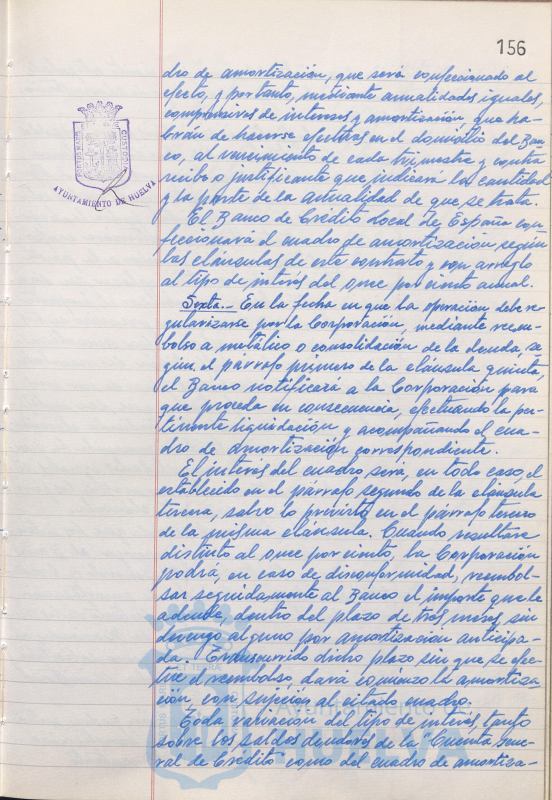 156
dro de amortización, que será confeccionado al
efecto, y por tanto, mediante anualidades iguales,
comprensivas de intereses y amortización, que ha-
brán de hacerse efectivas en el domicilio del Ban-
co, al vencimiento de cada trimestre y contra
recibo o justificante que indicará la cantidad
y la parte de la anualidad de que se trata.
El Banco de Crédito Local de España con-
feccionará el cuadro de amortización según
las cláusulas de este contrato y con arreglo
al tipo de interés del once por ciento anual.
Sexta.- En la fecha en que la operación debe re-
gularizarse por la Corporación, mediante reem-
bolso a metálico o consolidación de la deuda, se-
gún el párrafo primero de la cláusula quinta,
el Banco notificará a la Corporación para
que proceda en consecuencia, efectuando la per-
tinente liquidación y acompañando el cua-
dro de amortización correspondiente.
El interés del cuadro será, en todo caso, el
establecido en el párrafo segundo de la cláusula
tercera, salvo lo previsto en el párrafo tercero
de la misma cláusula. Cuando resultare
distinto al once por ciento, la Corporación
podrá, en caso de disconformidad, reembol-
sar seguidamente al Banco el importe que le
adeude, dentro del plazo de tres meses, sin
devengo alguno por amortización anticipa-
da. Transcurrido dicho plazo sin que se efec-
túe el reembolso, dará comienzo la amortiza-
ción con sujeción al citado cuadro.
Toda variación del tipo de interés, tanto
sobre los saldos deudores de la "Cuenta Gene-
ral de Crédito" como del cuadro de amortiza-
PORTUS MARIS
CUSTODIA
AYUNTAMIENTO DE HUELVA